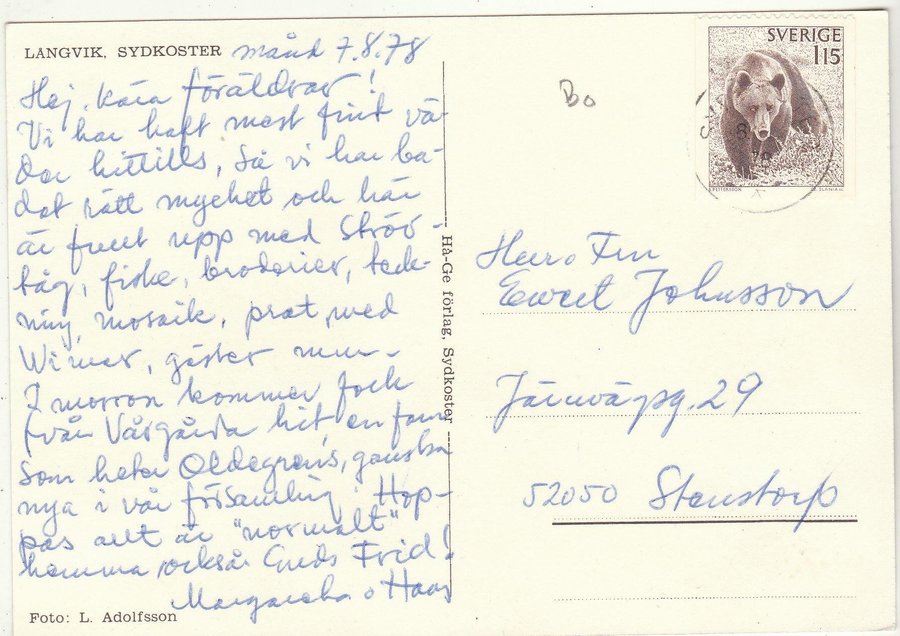 LANGVIK, SYDKOSTER månd 7.8.78
Hej, kära föräldrar!
Vi har haft mest fint vä-
der hittills, så vi har ba-
dat rätt mycket och här
är fullt upp med Ströv-
tåg, fiske, broderier, teck-
ning, mosaik, prat med
gäster mm.
I morron kommer folk
från Vårgårda hit en fam
som heter Oldegrens, ganska
nya i vår församling. Hop-
pas allt är "normalt"
hemma också. Guds Frid!
Margaretha o Hans
Foto: L. Adolfsson
Hå-Ge förlag, Sydkoster
Bo
SVERIGE
1 15
Herr o Fru
Evert Johnsson
Järnvägsg. 29
52050 Stenstorp